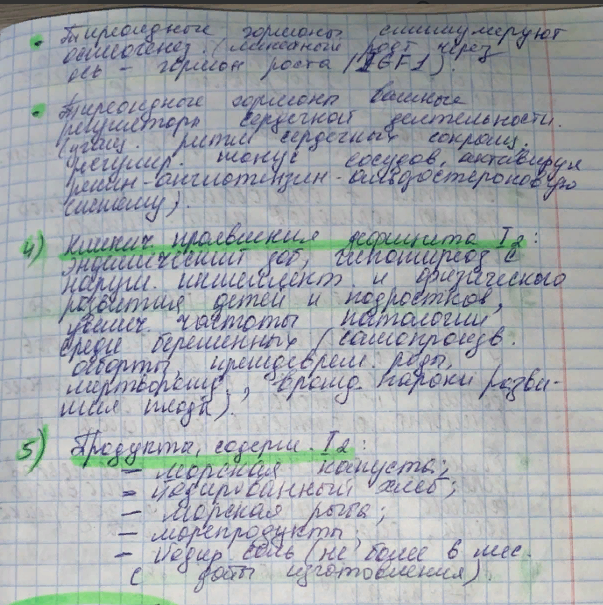 • Тиреоидные гормоны стимулируют
остеогенез. (линейный рост через
ось – гормон роста / IGF1).
• Тиреоидные гормоны важные
регуляторы сердечной деятельности.
(учащ. ритм сердечных сокращ.
регулир. тонус сосудов, активируя
ренин-ангиотензин-альдостероновую
систему).
4) Клинич. проявления дефицита I2:
эндемический зоб, гипотиреоз с
наруш. интеллект и физического
развития детей и подростков,
увелич. частоты патологии
среди беременных (самопроизв.
аборты, преждеврем. роды,
мертворожд., врожд. пороки разви-
тия плода).
5) Продукты, содерж. I2:
– морская капуста;
– йодированный хлеб;
– морская рыба;
– морепродукты,
– йодир. соль (не более 6 мес.
с даты изготовления).